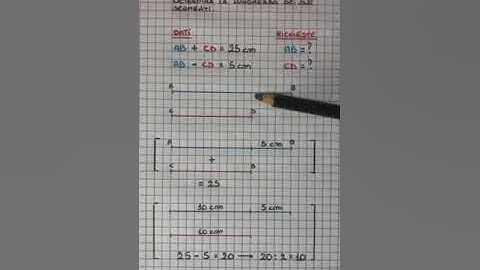 DETERMINA LA LUNGHEZZA DI DUE
SEGMENTI.
DATI RICHIESTE
AB + CD = 25 cm AB = ?
AB - CD = 5 cm CD = ?
A B
C D
A 5 cm B
+
C D
= 25
10 cm 5 cm
10 cm
25 - 5 = 20 → 20 : 2 = 10